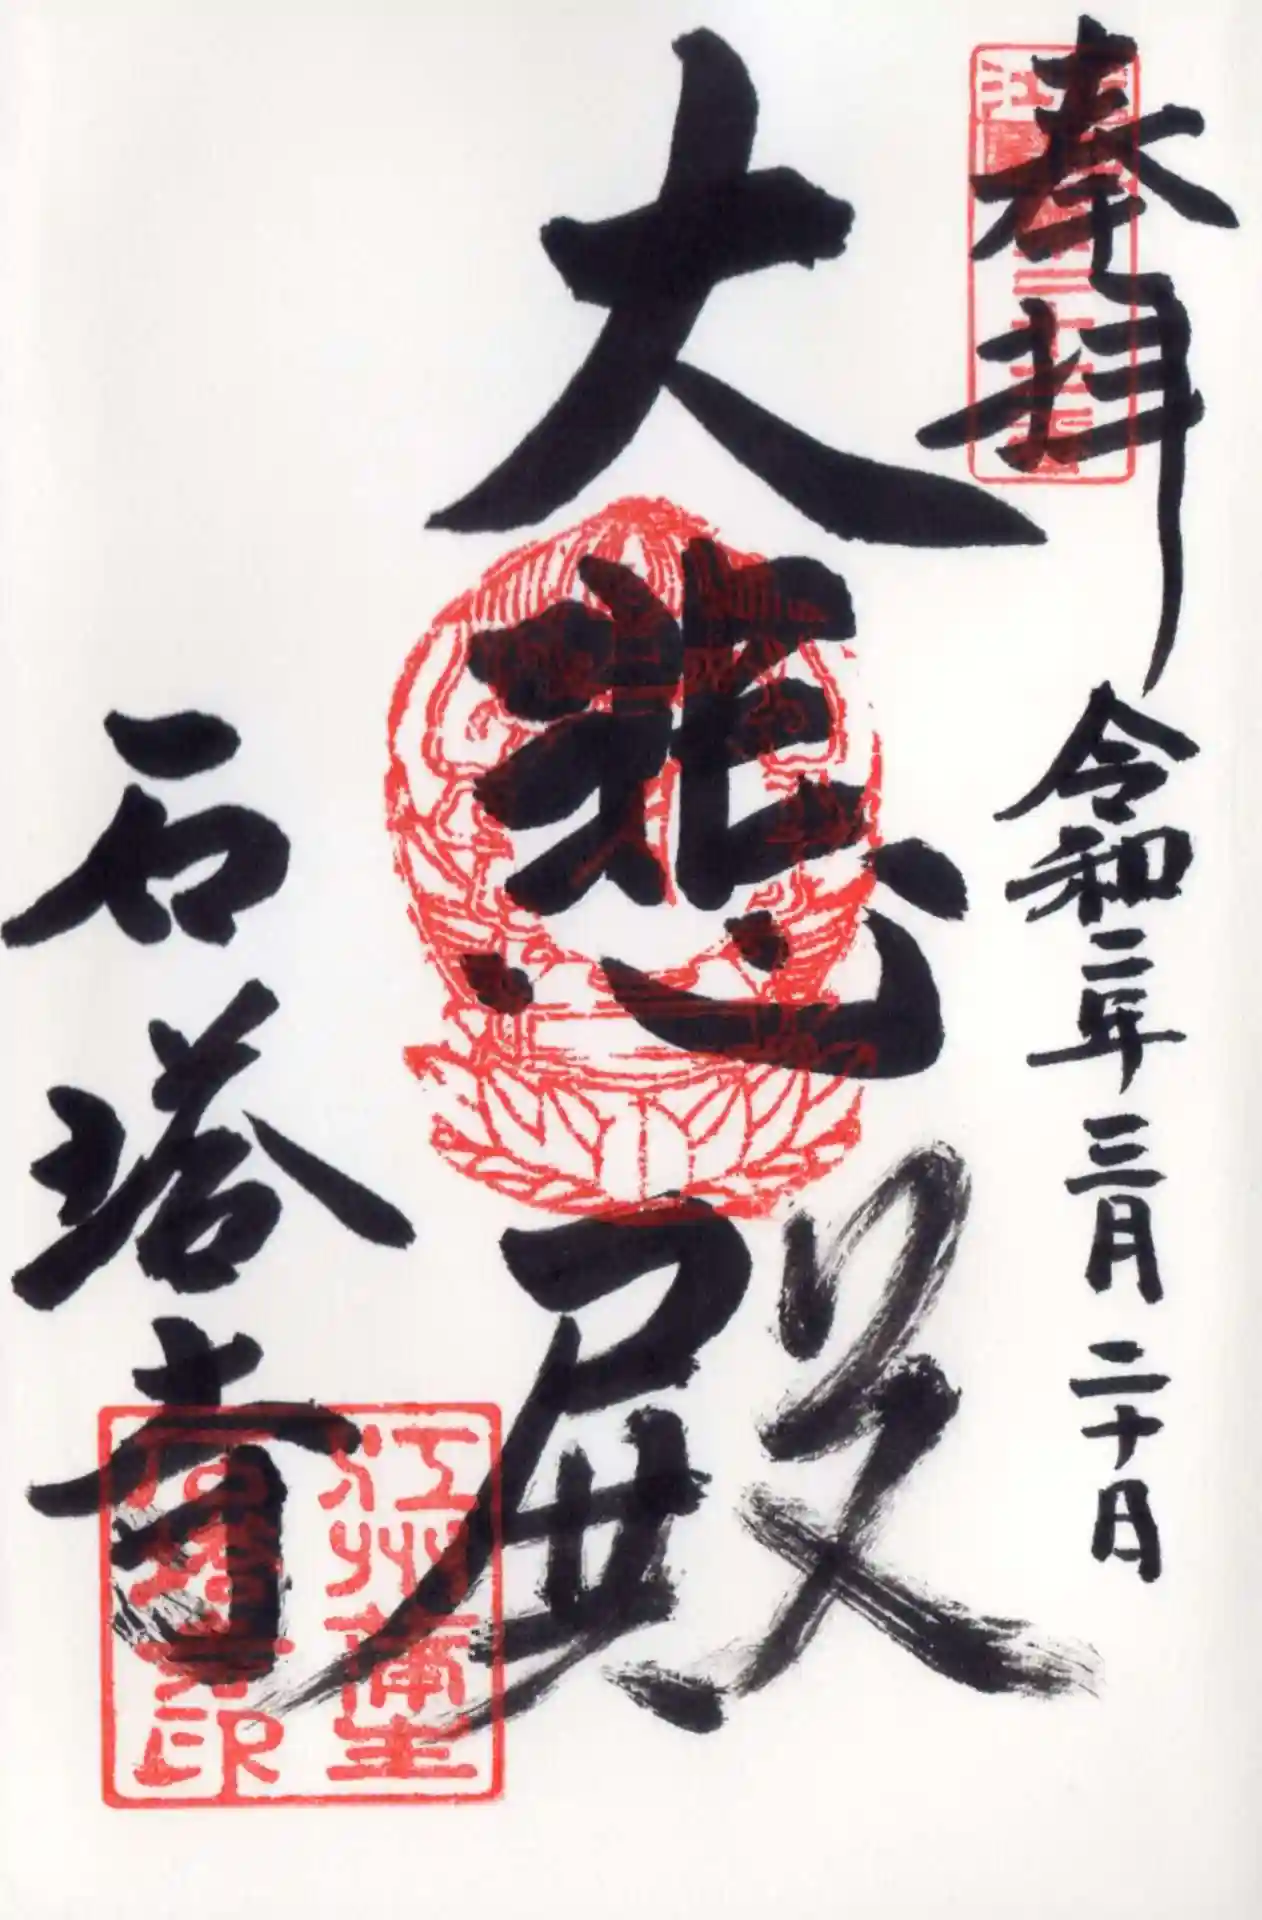 奉拝
令和二年三月二十日
大悲殿
石塔寺
江州蒲生
石塔寺印